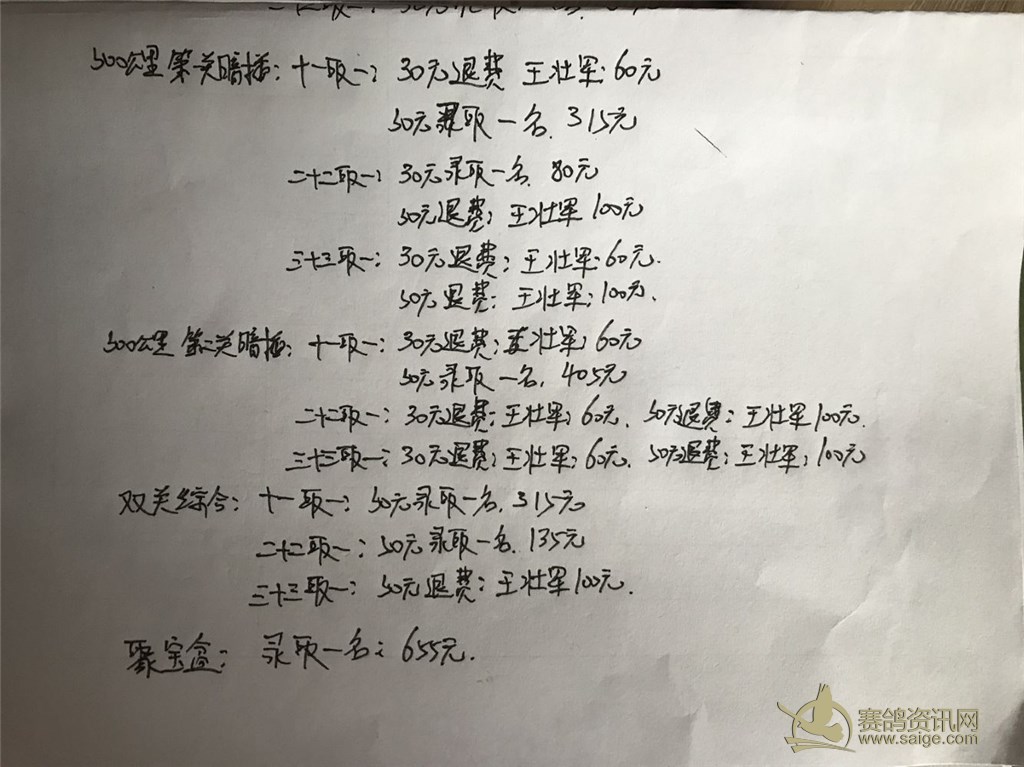 500公里第一关暗插：十一取一：30元退费 王壮军：60元
50元录取一名，315元
二十二取一：30元录取一名，80元
50元退费：王壮军100元
三十三取一：30元退费：王壮军：60元.
50元退费：王壮军：100元.
500公里第二关暗插：十一取一：30元退费：王壮军：60元
50元录取一名，405元
二十二取一：30元退费：王壮军：60元. 50元退费：王壮军100元.
三十三取一：30元退费：王壮军：60元. 50元退费：王壮军：100元
双关综合：十一取一：50元录取一名，315元
二十二取一：50元录取一名，135元
三十三取一：50元退费：王壮军100元.
聚宝盒：录取一名：655元.
赛鸽资讯网
www.saige.com